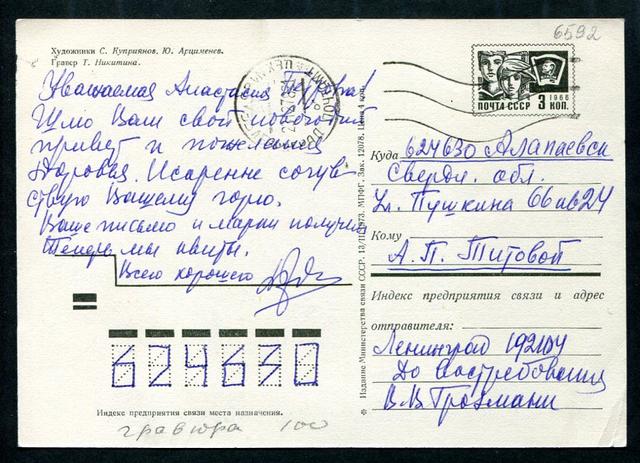 Художники С. Куприянов, Ю. Арцименев.
Гравер Т. Никитина.
6592
Уважаемая Анастасия Петровна!
Шлю Вам свой новогодний
привет и пожелания
здоровья. Искренне сочув-
ствую Вашему горю.
Ваше письмо и марки получил
Теперь мы квиты.
Всего хорошего
ПОЧТА СССР 3 КОП.
1966
Куда 624630 Алапаевск
Свердл. обл.
Ул. Пушкина 66 кв 24
Кому
А. П. Титовой
Индекс предприятия связи и адрес
отправителя:
Ленинград 192104
До востребования
В. В. Грозмани
Издание Министерства связи СССР. 13/III 1973. МПФГ. Зак. 12078. Цена 4 коп.
624630
Индекс предприятия связи места назначения.
гравюра 100